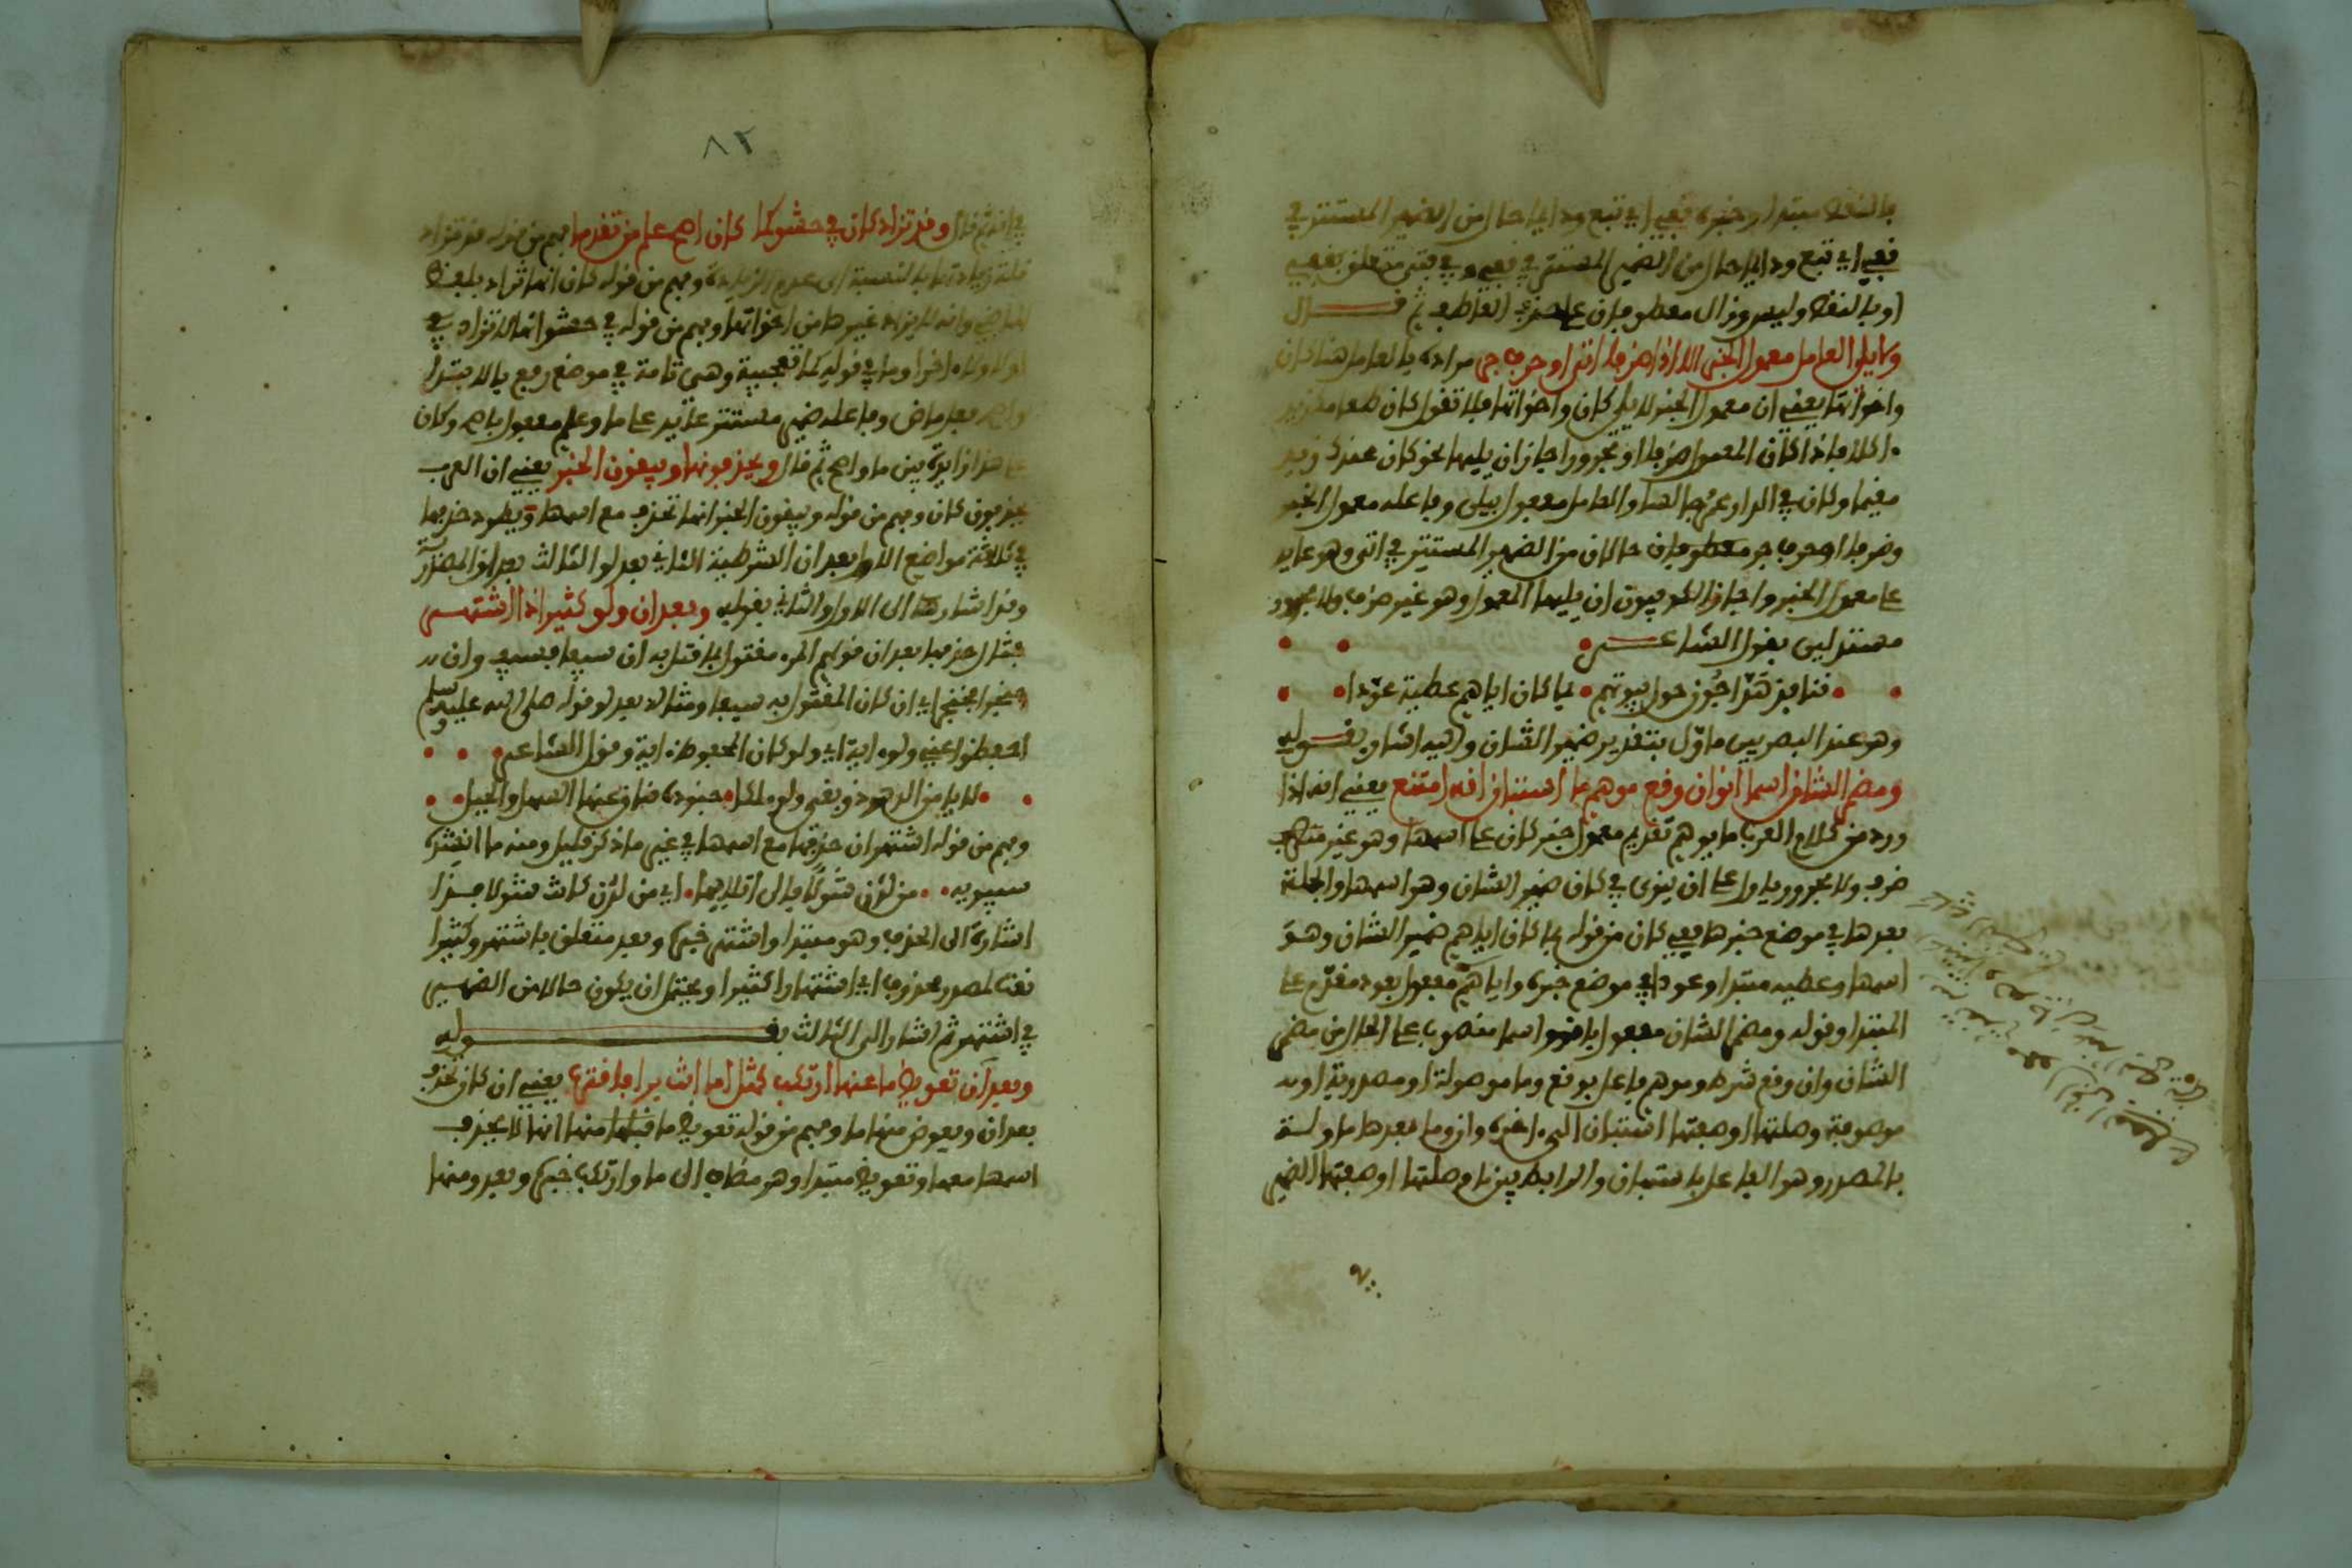 بالنقص مبتدا وخبره قفي اي تبع ودايما حال من الضمير المستتر في
قفي اي تبع ودايما حال من الضمير المستتر في قفي وفي فتى متعلق بقفي
او بالنقص وليس وزال معطوفان على حذف العاطف ثم قـــال
ولا يلي العامل معمول الخبر الا اذا ظرفا اتى او حرف جر مراده بالعامل هنا كان
واخواتها يعني ان معمول الخبر لا يلي كان واخواتها فلا تقول كان طعامك زيد
اكلا فاذا كان المعمول ظرفا او مجرورا جاز ان يليها نحو كان عندك زيد
مقيما وكان في الدار عمرو جالسا والعامل مفعول بيلي وفاعله معمول الخبر
وظرفا او حرف جر معطوفان حالان من الضمير المستتر في اتى وهو عايد
على معمول الخبر واجاز الكوفيون ان يليها المعمول وهو غير ظرف ولا مجرور
مستدلين بقول الشاعـــر
قنافذ هدّاجُون حول بيوتهم • بما كان اياهم عطية عوّدا
وهو عند البصريين ماوّل بتقدير ضمير الشان واليه اشار بقـــوله
ومضمر الشان اسما انو ان وقع موهم ما استبان انه امتنع يعني انه اذا
ورد من كلام العرب ما يوهم تقديم معمول خبر كان على اسمها وهو غير
ظرف ولا مجرور ياول على ان ينوى في كان ضمير الشان وهو اسمها والجملة
بعدها في موضع خبرها ففي كان من قوله بما كان اياهم ضمير الشان وهو
اسمها وعطية مبتدا وعودا في موضع خبره واياهم مفعول بعود مقدم على
المبتدا وقوله ومضمر الشان مفعول بانو واسما منصوب على الحال من مضمر
الشان وان وقع شرط وموهم فاعل بوقع وما موصولة او مصدرية او
موصوفة وصلتها او صفتها استبان الى اخره وان وما بعدها ماولة
بالمصدر وهو الفاعل باستبان والرابط بين ما وصلتها او صفتها الضمير
٨٢
في انه ثم قال وقد تزاد كان في حشو كما كان اصح علم من تقدما فهم من قوله قد تزاد
قلة زيادتها بالنسبة الى عدم الزيادة وفهم من قوله كان انها تزاد بلفظ
الماضي وانه لا يزاد غيرها من اخواتها وفهم من قوله في حشو انها لا تزاد في
اولا ولا اخرا وما في قوله كما تعجبية وهي تامة في موضع رفع بالابتدا
واصح فعل ماض وفاعله ضمير مستتر عايد على ما وعلم مفعول باصح وكان
على هذا زايدة بين ما واصح ثم قال ويحذفونها ويبقون الخبر يعني ان العرب
يحذفون كان وفهم من قوله ويبقون الخبر انها تحذف مع اسمها ويطرد حذفها
في ثلاثة مواضع الاول بعد ان الشرطية الثاني بعد لو الثالث بعد ان المصدرية
وقد اشار الى الاول والثاني بقوله وبعد ان ولو كثيرا ذا اشتهـــر
مثال حذفها بعد ان قولهم المرء مقتول بما قتل به ان سيفا فسيف وان
خنجرا فخنجر اي ان كان المقتول به سيفا ومثاله بعد لو قوله صلى الله عليه وسلم
احفظوا عني ولو اية اي ولو كان المحفوظ اية وقول الشاعر
لا يامن الدهر ذو بغي ولو ملكا • جنوده ضاق عنها السهل والجبل
وفهم من قوله اشتهر ان حذفها مع اسمها في غير ما ذكر قليل ومنه ما انشده
سيبويه • من لدن شولًا فالى اتلايها • اي من لدن كانت شولا فـــذا
اشارة الى الحذف وهو مبتدا واشتهر خبره وبعد متعلق باشتهر وكثيرا
نعت لمصدر محذوف اي اشتهارا كثيرا ويحتمل ان يكون حالا من الضمير
في اشتهر ثم اشار الى الثالث بقـــوله
وبعد ان تعويض ما عنها ارتكب كمثل اما انت برا فاقترب يعني ان كان تحذف
بعد ان ويعوض منها ما وفهم من قوله تعويض ما منها انها لا يحذف
اسمها معها وتعويض مبتدا وهو مضاف الى ما وارتكب خبره وبعد ومنها